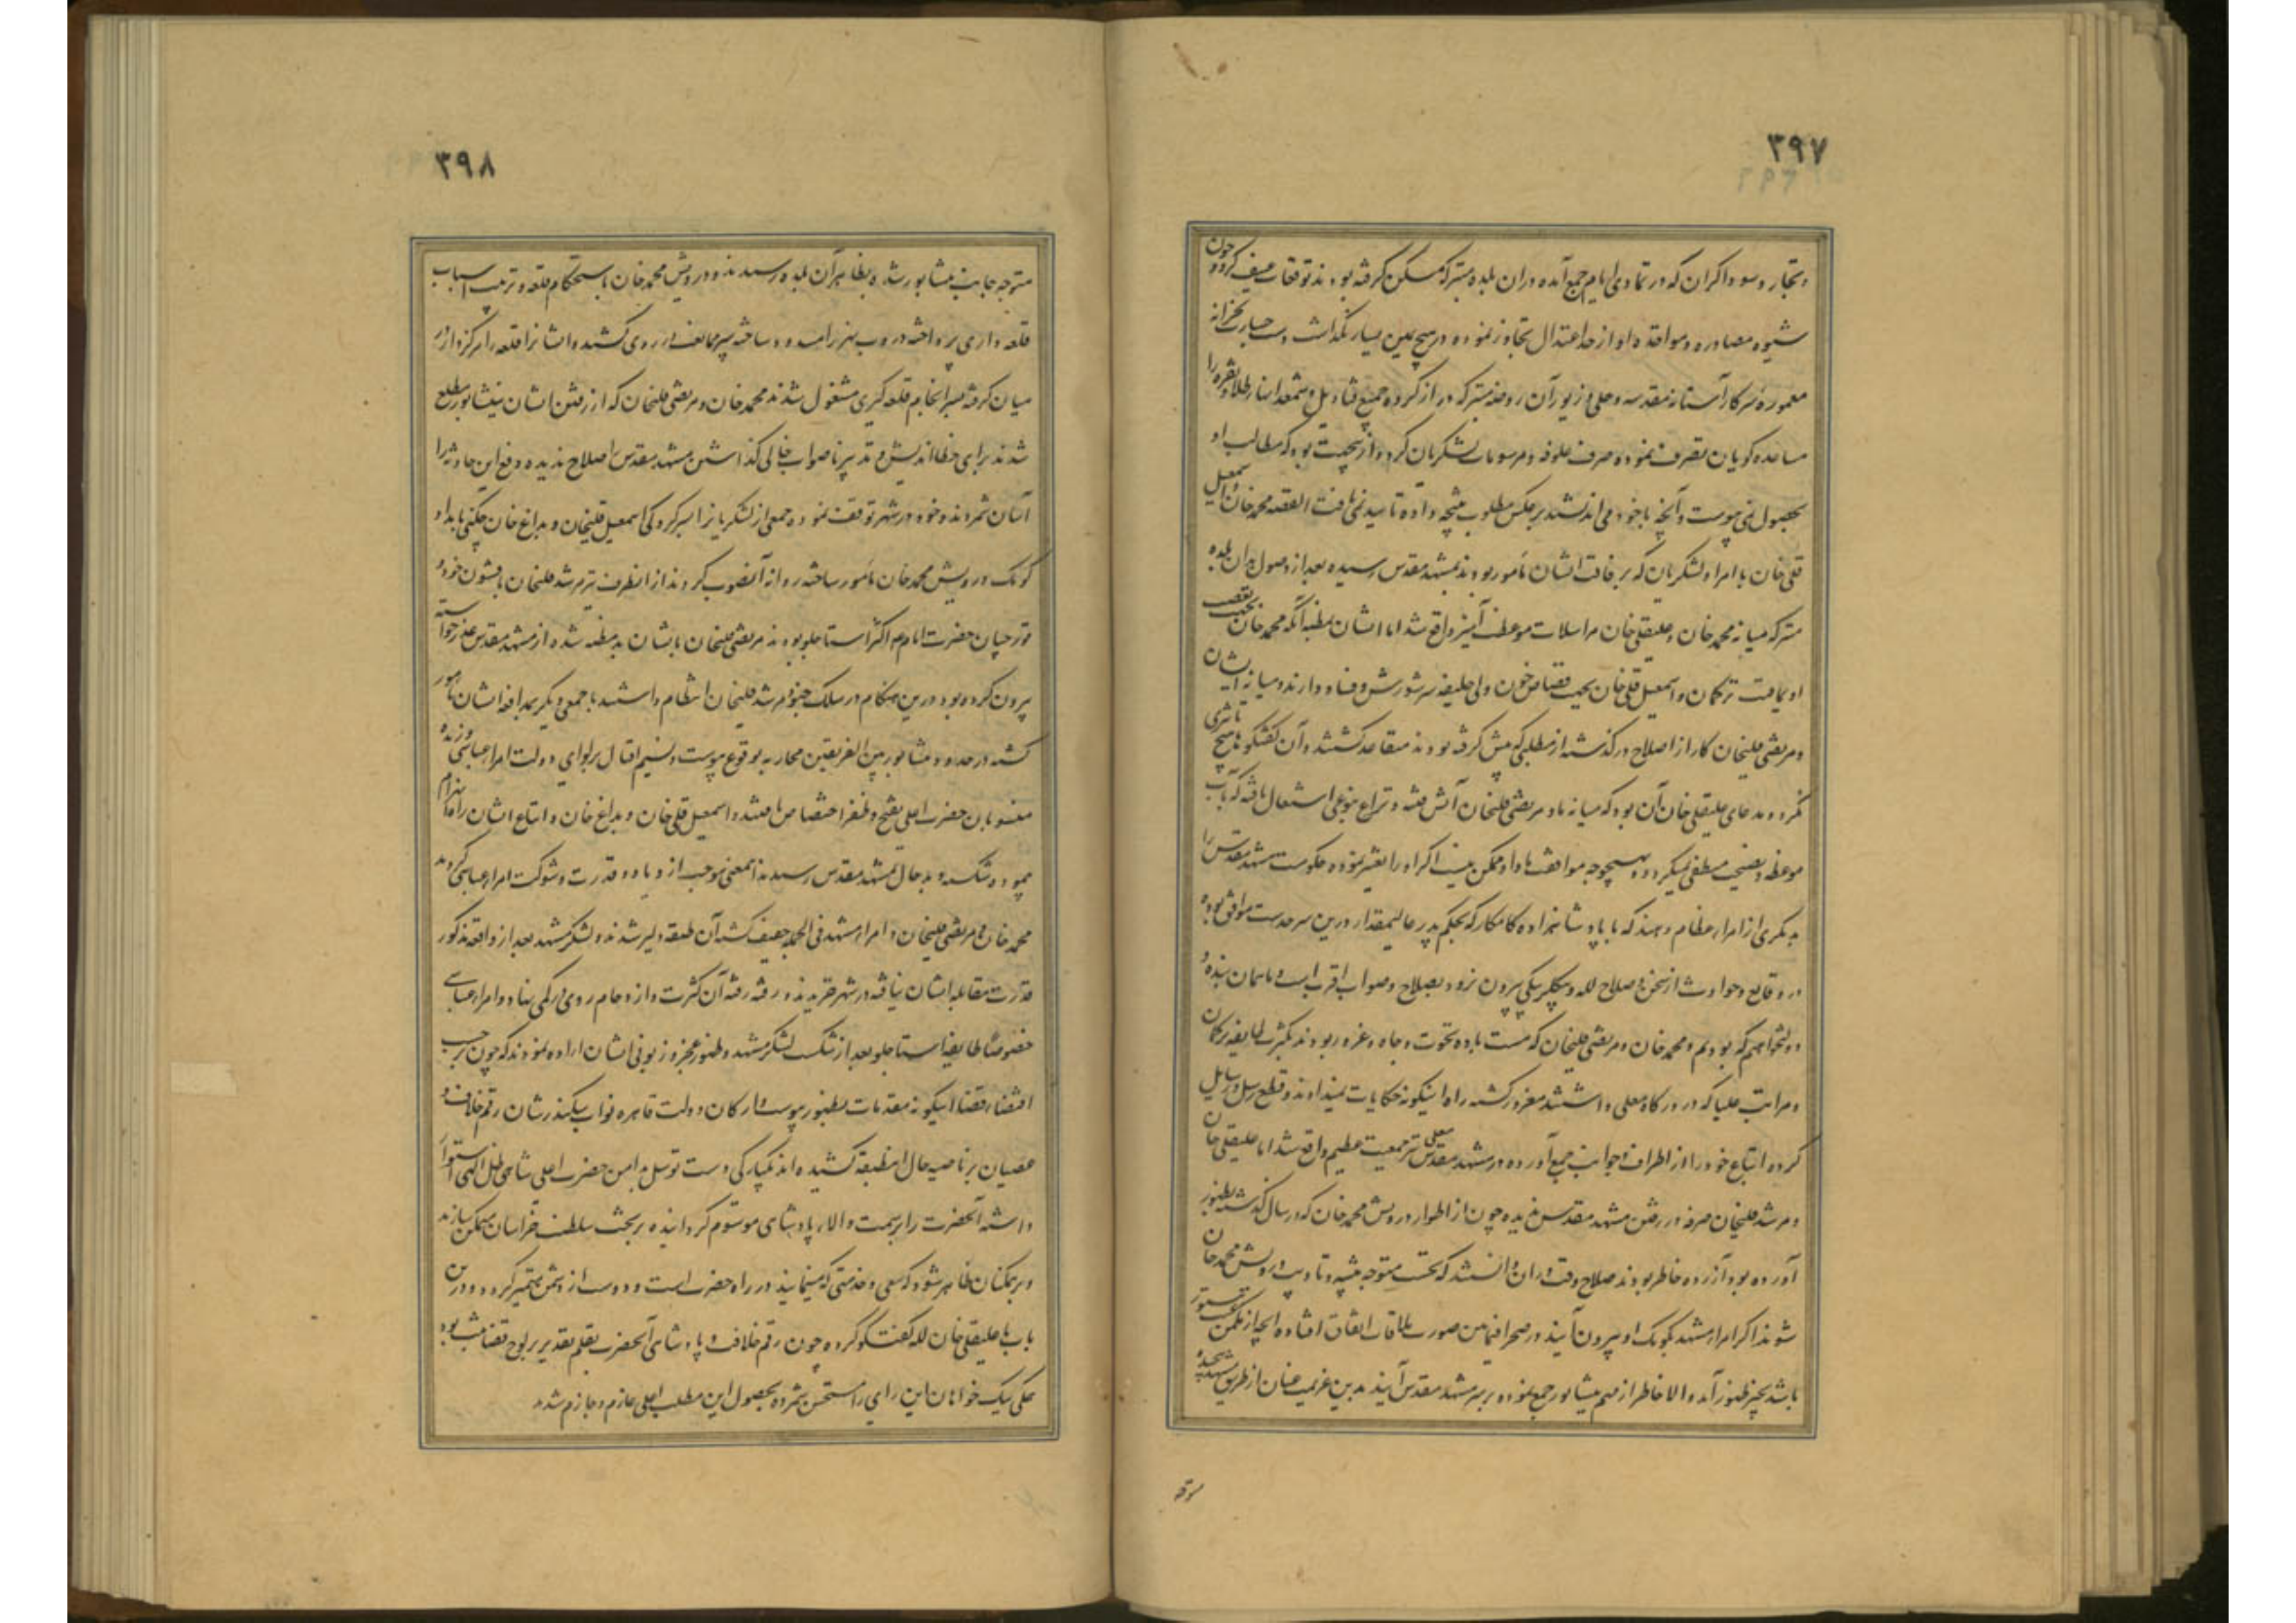 ۳۹۷
و تجار و سوداگران که در تمادی ایام جمع آمده در آن بلده متبرکه مسکن گرفته بودند توقعات عنیف کرد و چون
شیوه مصادره و مواخذه او از حد اعتدال تجاوز نموده در هیچ یمین یسار نگذاشت دست جسارت بخزانه
معموره سرکار آستانه مقدسه و حلی و زیور آن روضه متبرکه دراز کرده جمیع قنادیل و شمعدانهای طلا و نقره را
مساعده گویان تصرف نموده صرف علوفه و مرسومات لشکریان کرد و ازینجهت بود که مطالب او
بحصول نمی پیوست و آنچه با خود می اندیشند بر عکس مطلوب نتیجه داده تایید نمی یافت القصه محمد خان و اسمعیل
قلی خان با امرا و لشکریان که برفاقت ایشان مامور بودند بمشهد مقدس رسیده بعد از وصول بدان بلده
متبرکه میانه محمد خان و علیقلی خان مراسلات موعظت آمیز واقع شد اما ایشان بمظنه آنکه محمد خان بجهت تعصب
اویماقیت ترکمان و اسمعیل قلی خان بجهت قصاص خون ولی خلیفه سر شورش و فساد دارند و میانه ایشان
و مرتضی قلیخان کار از اصلاح در گذشته از مطلبی که پیش گرفته بودند متقاعد نگشتند و آن گفتگو ها هیچ تاثیری
نکرد و مدعای علیقلی خان آن بود که میانه ما و مرتضی قلیخان آتش فتنه و نزاع بنوعی اشتعال یافته که بآب
موعظه و نصیحت منطفی نمیگردد و بهیچوجه موافقت ما و او ممکن نیست اگر او را تغییر نموده حکومت مشهد مقدس را
بدیگری از امراء عظام دهند که با پادشاهزاده کامکار که بحکم پدر عالیمقدار درین سرحدست موافق بوده
در وقایع و حوادث از سخن و صلاح لله و بیکلربیکی بیرون نرود بصلاح و صواب اقرب است و ما همان بنده و
دولتخواهیم که بودیم و محمد خان و مرتضی قلیخان که مست باده نخوت و جاه و غرور بودند بکثرت طایفه ترکمان
و مراتب علیا که در درگاه معلی داشتند مغرور گشته راه اینگونه حکایات نمیدادند و قطع رسل و رسایل
کرده اتباع خود را از اطراف و جوانب جمع آورده در مشهد مقدس معلی نیز جمعیت عظیم واقع شد اما علیقلی خان
و مرشد قلیخان صرفه در رفتن مشهد مقدس ندیده چون از اطوار درویش محمد خان که در سال گذشته بظهور
آورده بود آزرده خاطر بودند صلاح وقت در آن دانستند که نخست متوجه تنبیه و تادیب درویش محمد خان
شوند اگر امراء مشهد بکومک او بیرون آیند در صحرا فیمابین صورت ملاقات اتفاق افتاده آنچه از مکمن مستور
باشد بحیز ظهور آمد والا خاطر از مهم نیشابور جمع نموده بر سر مشهد مقدس آیند بدین عزیمت عنان از طریق مشهد پیچیده
متوجه
۳۹۸
متوجه جانب نیشابور شده بظاهر آن بلده رسیدند و درویش محمد خان باستحکام قلعه و ترتیب اسباب
قلعه داری پرداخته دروب شهر را مسدود ساخته سپر ممانعت در روی کشید و ایشان قلعه را مرکزوار در
میان گرفته بسرانجام قلعه گیری مشغول شدند محمد خان و مرتضی قلیخان که از رفتن ایشان بنیشابور مطلع
شدند برای خطا اندیش و تدبیر ناصواب خالی گذاشتن مشهد مقدس اصلاح ندیده دفع این حادثه را
آسان شمردند و خود در شهر توقف نموده جمعی از لشکریان را بسرکردگی اسمعیل قلیخان و بداغ خان چکنی بامداد و
کومک درویش محمد خان مامور ساخته روانه آنصوب کردند از انطرف نیز مرشد قلیخان با قشون خود و
قورچیان حضرت امام که اکثر استاجلو بودند مرتضی قلیخان بایشان بدمظنه شده از مشهد مقدس عذر خواسته
بیرون کرده بود درین هنگام در سلک جنود مرشد قلیخان انتظام داشتند با جمعی دیگر بمدافعه ایشان مامور
گشته در حدود نیشابور بین الفریقین محاربه بوقوع پیوست و نسیم اقبال بر لوای دولت امراء عباسی وزیده
منسوبان حضرت اعلی بفتح و ظفر اختصاص یافتند و اسمعیل قلی خان و بداغ خان و اتباع ایشان راه انهزام
پیموده شکسته و بدحال بمشهد مقدس رسیدند اینمعنی موجب ازدیاد قدرت و شوکت امراء عباسی گردید
محمد خان و مرتضی قلیخان و امراء مشهد فی الجمله ضعیف گشته آن طبقه دلیر شدند و لشکر مشهد بعد از واقعه مذکور
قدرت مقابله ایشان نیافته در شهر خزیدند و رفته رفته آن کثرت و ازدحام روی در کمی نهاد و امراء عباسی
خصوصا طایفه استاجلو بعد از شکست لشکر مشهد و ظهور عجز و زبونی ایشان اراده نمودند که چون بر حسب
اقتضاء قضا اینگونه مقدمات بظهور پیوست و ارکان دولت قاهره نواب سکندرشان رقم خلاف و
عصیان بر ناصیه حال اینطبقه کشیده اند یکبارگی دست توسل بدامن حضرت اعلی شاهی ظل اللهی استوار
داشته آنحضرت را بسمت والای پادشاهی موسوم گردانیده بر تخت سلطنت خراسان متمکن سازند
و بر همکنان ظاهر شود که سعی و خدمتی که مینمایند در راه حضرت است و دوست از دشمن متمیز گردد و درین
باب با علیقلی خان لله گفتگو کرده چون رقم خلافت و پادشاهی آنحضرت بقلم تقدیر بر لوح قضا مثبت بود
همگی نیک خواهان این رای را مستحسن شمرده بحصول این مطلب اعلی عازم و جازم شدند